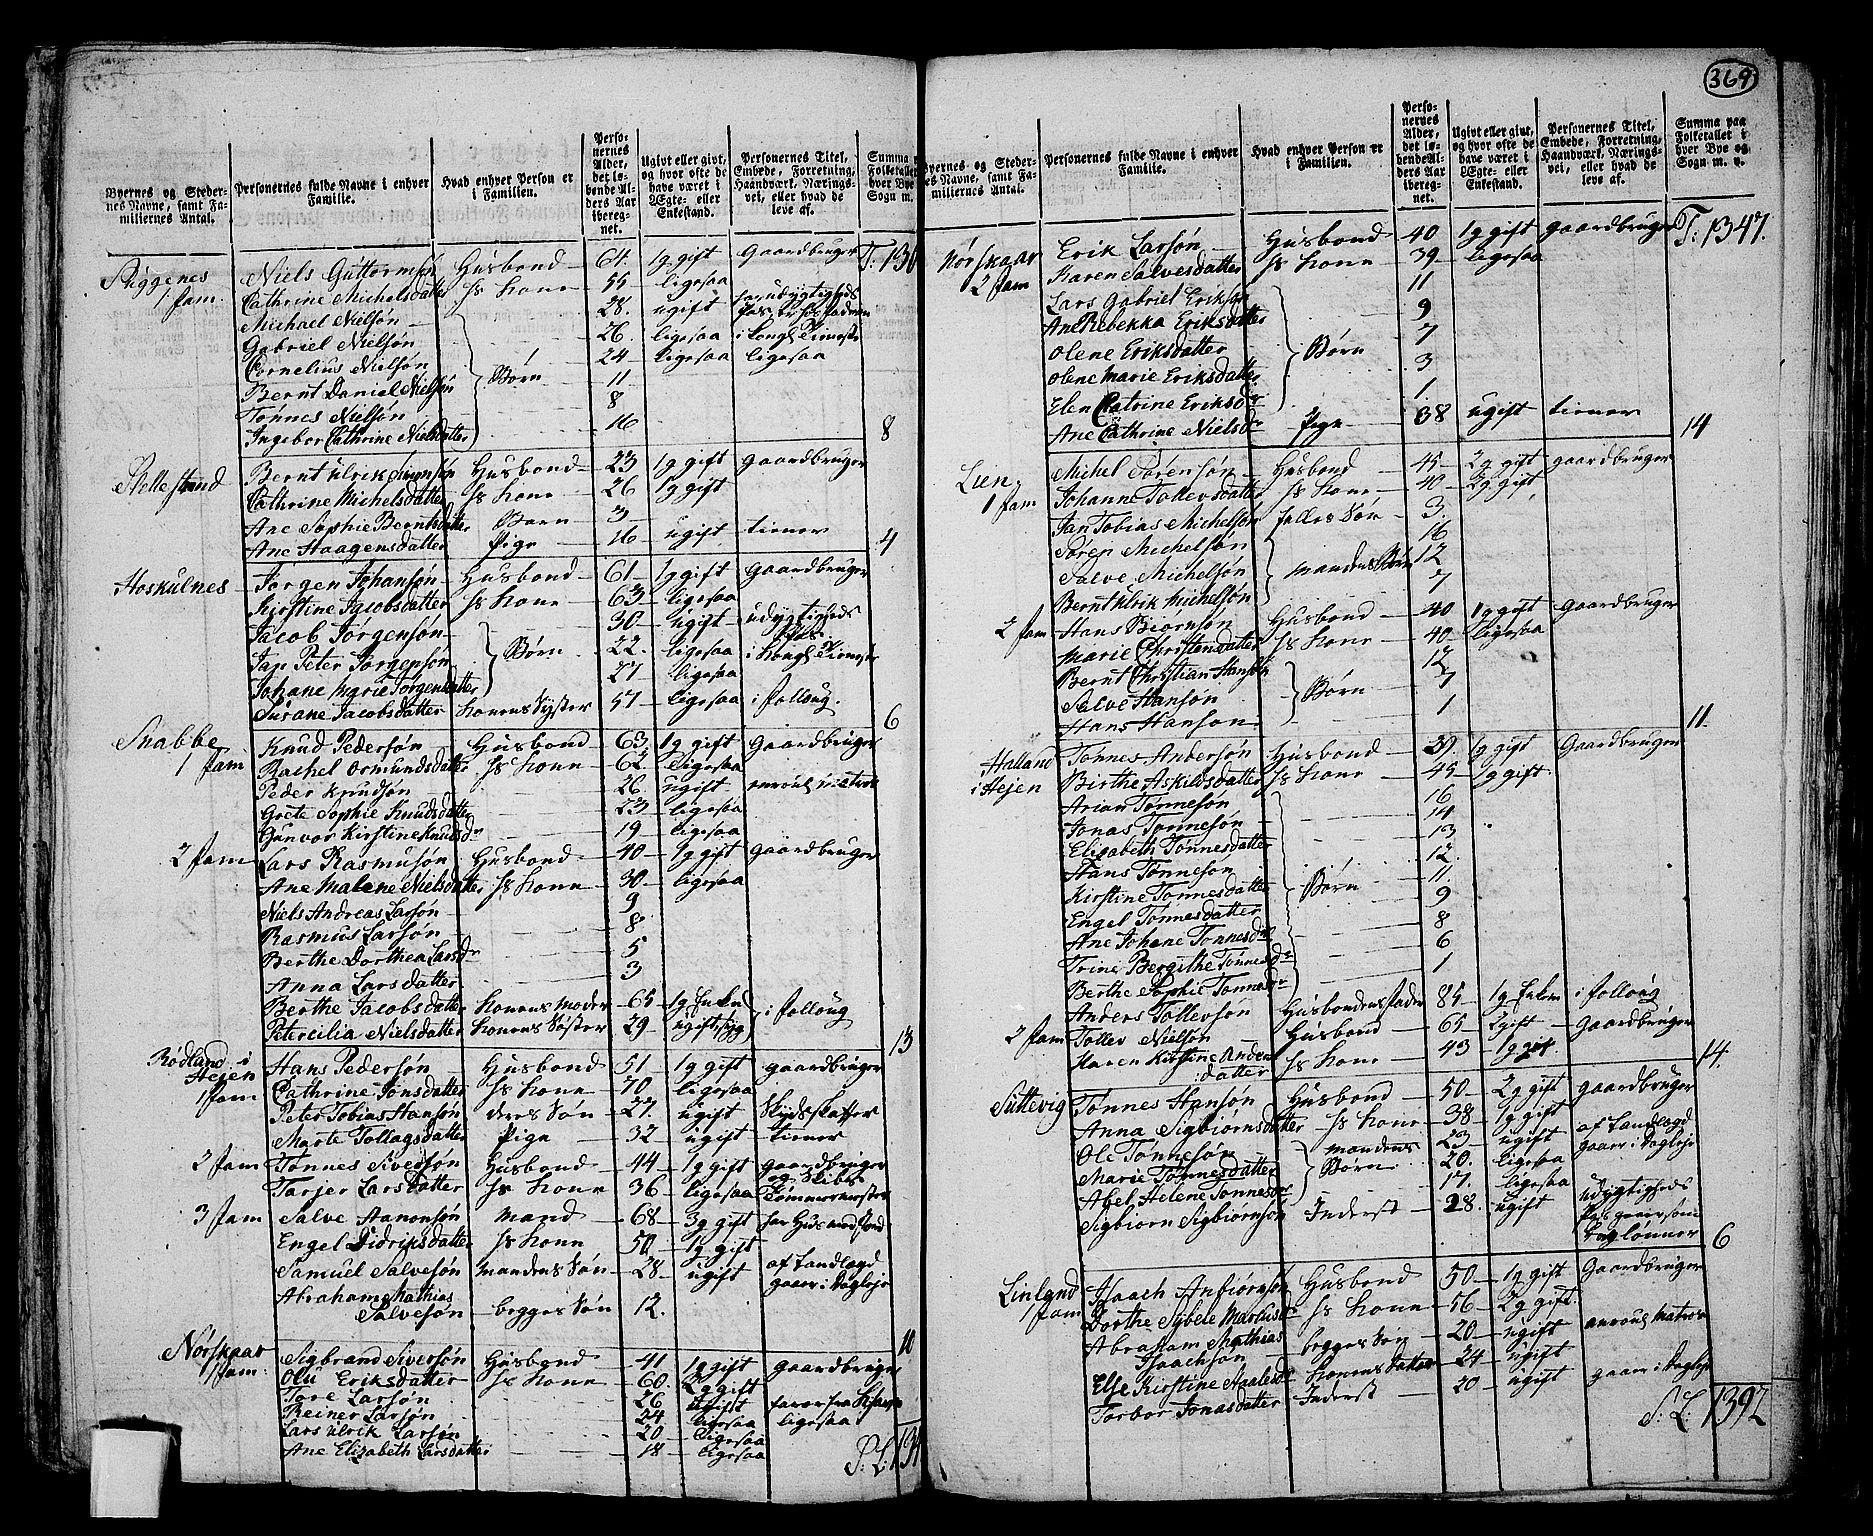 369
Byernes og Stedernes Navne, samt Familiernes Antal.
Personernes fulde Navne i enhver Familie.
Hvad enhver Person er i Familien.
Personernes Alder, det løbende Alders Aar iberegnet.
Ugivt eller givt, og hvor ofte de have været i Ægte- eller Enkestand.
Personernes Titel, Embede, Forretning, Haandværk, Næringsvei, eller hvad de leve af.
Summa
Folketallet
hver Bye
Sogn m.
Niels Guttormsøn Husbond 61. 1 g gift Gaardbruger
1 fam. Cathrine Michelsdatter hs Kone 55 ligesaa
Michael Nielsøn 28. ugift
Gabriel Nielsøn 26. ligesaa
Cornelius Nielsøn 24 ligesaa ligesaa
Bernt Daniel Nielsøn Børn 11
Tønnes Nielsøn 8
Ingebor Cathrine Nielsdatter 16 8
Bernt Ulrik Husbond 23 1 g gift gaardbruger
Cathrine Michelsdatter hs Kone 26 1 g gift
Ane Sophie Berntsdatter Barn 3
Ane Haagensdatter Pige 16 ugift tiener 4
Hoskulnes Jørgen Johansøn Husbond 61 1 g gift Gaardbruger
Kirstine Jacobsdatter hs Kone 63 ligesaa
Jacob Jørgensøn 30 ugift udygtigheds
Jan Peter Jørgensøn Børn 22. ligesaa
Johane Marie Jørgensdatter 27 ligesaa
Susane Jacobsdatter Konens Syster 57 ligesaa 6
Snabbe Knud Pedersøn Husbond 63 1 g gift Gaardbruger
1 fam Rachel Ormundsdatter hs Kone 62 ligesaa
Peder Knudsøn 26 ugift
Grete Sophie Knudsdatter 23 ligesaa
Gunvor Kirstine Knudsdr 19 ligesaa
2 fam Lars Rasmusøn Husbond 40 1 g gift gaardbruger
Ane Malene Nielsdatter hs Kone 30 ligesaa
Niels Andreas Larsøn 9
Rasmus Larsøn 8
Berthe Dorthea Larsdr 5
Anna Larsdatter 3
Berthe Jacobsdatter Konens Moder 65 1 g Enke
Petercilia Nielsdatter Konens Søster 29 ugift 13
Rødland i Hejen Hans Pedersøn Husbond 51 1 g gift gaardbruger
1 fam Cathrine Jonsdatter hs Kone 70 ligesaa
Peter Tobias Hansøn deres Søn 27. ugift
Marte Tollagsdatter Pige 32 ugift tiener
2 fam Tønnes Siversøn Husbond 44 1 g gift gaardbruger
Tarjer Larsdatter hs Kone 36 ligesaa Tømmermester
3 fam Salve Aanonsøn Mand 68 3 g gift
Engel Didriksdatter hs Kone 50 1 g gift
Samuel Salvesøn Mandens Søn 28 ugift
Abraham Mathias
Salvesøn begges Søn 12. 10
Nørskaar Sigbrand Siversøn Husbond 41 1 g gift gaardbruger
1 fam. Olu Eriksdatter hs Kone 60 2 g gift
Tore Larsøn 26 ugift
Reiner Larsøn 24 ligesaa ligesaa
Lars Ulrik Larsøn 20 ligesaa
Ane Elizabeth Larsdatter 18 ligesaa
Byernes og Stedernes Navne, samt Familiernes Antal.
Personernes fulde Navne i enhver Familie.
Hvad enhver Person er i Familien.
Personernes Alder, det løbende Alders Aar iberegnet.
Ugivt eller givt, og hvor ofte de have været i Ægte- eller Enkestand.
Personernes Titel, Embede, Forretning, Haandværk, Næringsvei, eller hvad de leve af.
Summa paa Folketallet i hver Bye og Sogn m. v.
Nørskaar Erik Larsøn Husbond 40 1 g gift gaardbruger T: 1347.
2 fam Karen Salvesdatter hs Kone 39 ligesaa
Lars Gabriel Eriksøn 11
Ane Rebekka Eriksdatter 9
Olene Eriksdatter Børn 7
Olene Marie Eriksdatter 3
Elen Catrine Eriksdr 1
Ane Cathrine Nielsdr Pige 38 ugift tiener 14
Lien Michel Sørensøn Husbond 45 2 g gift gaardbruger
1 fam Johanne Tollevsdatter hs Kone 40 2 g gift
Jan Tobias Michelsøn fælles Søn 3.
Søren Michelsøn 16
Salve Michelsøn mandens Børn 12
Bernt Ulrik Michelsøn 7
2 fam Hans Biørnsøn Husbond 40 1 g gift Gaardbruger
Marie Christensdatter hs Kone 40 ligesaa
Bernt Christian Hansøn 12
Salve Hansøn Børn 7
Hans Hansøn 1 11.
Halland Tønnes Andersøn Husbond 39. 1 g gift Gaardbruger
i Hejen Birthe Askildsdatter hs Kone 45 1 g gift
Arian Tønnesøn 16
Jonas Tønnesøn 14
Elizabeth Tønnesdatter 13
Hans Tønnesøn 12.
Kirstine Tønnesdatter Børn 11.
Engel Tønnesdatter 9
Ane Johane Tønnesdatter 8
Trine Bergithe Tønnesdr 6
Berthe Sophie Tønnesdr 1
Anders Tollevsøn Husbondens Fader 85
2 fam Tollev Nielsøn Husbond 65 2 gift gaardbruger
Karen Kirstine Anders
datter hs Kone 43 1 g gift 14.
Suttevig Tønnes Hansøn Husbond 50 2 g gift gaardbruger
Anna Sigbiørnsdatter hs Kone 38 1 g gift
Ole Tønnesøn mandens 23 ugift
Marie Tønnesdatter Børn 20. ligesaa
Abel Helene Tønnesdr 17. ligesaa
Sigbiørn Sigbiørnsøn Inderst 28. ugift udygtigheds 6
Linland Isaach Anbiørnsøn Husbond 50 1 g gift Gaardbruger
1 fam Dorthe Sybele hs Kone 56 2 g gift.
Abraham Mathias
Isaachsøn begges Søn 20 ugift
Else Kirstine Konens Datter 24 ugift
Torbor Jonasdatter Inderst 20 ugift
S: L: 1392